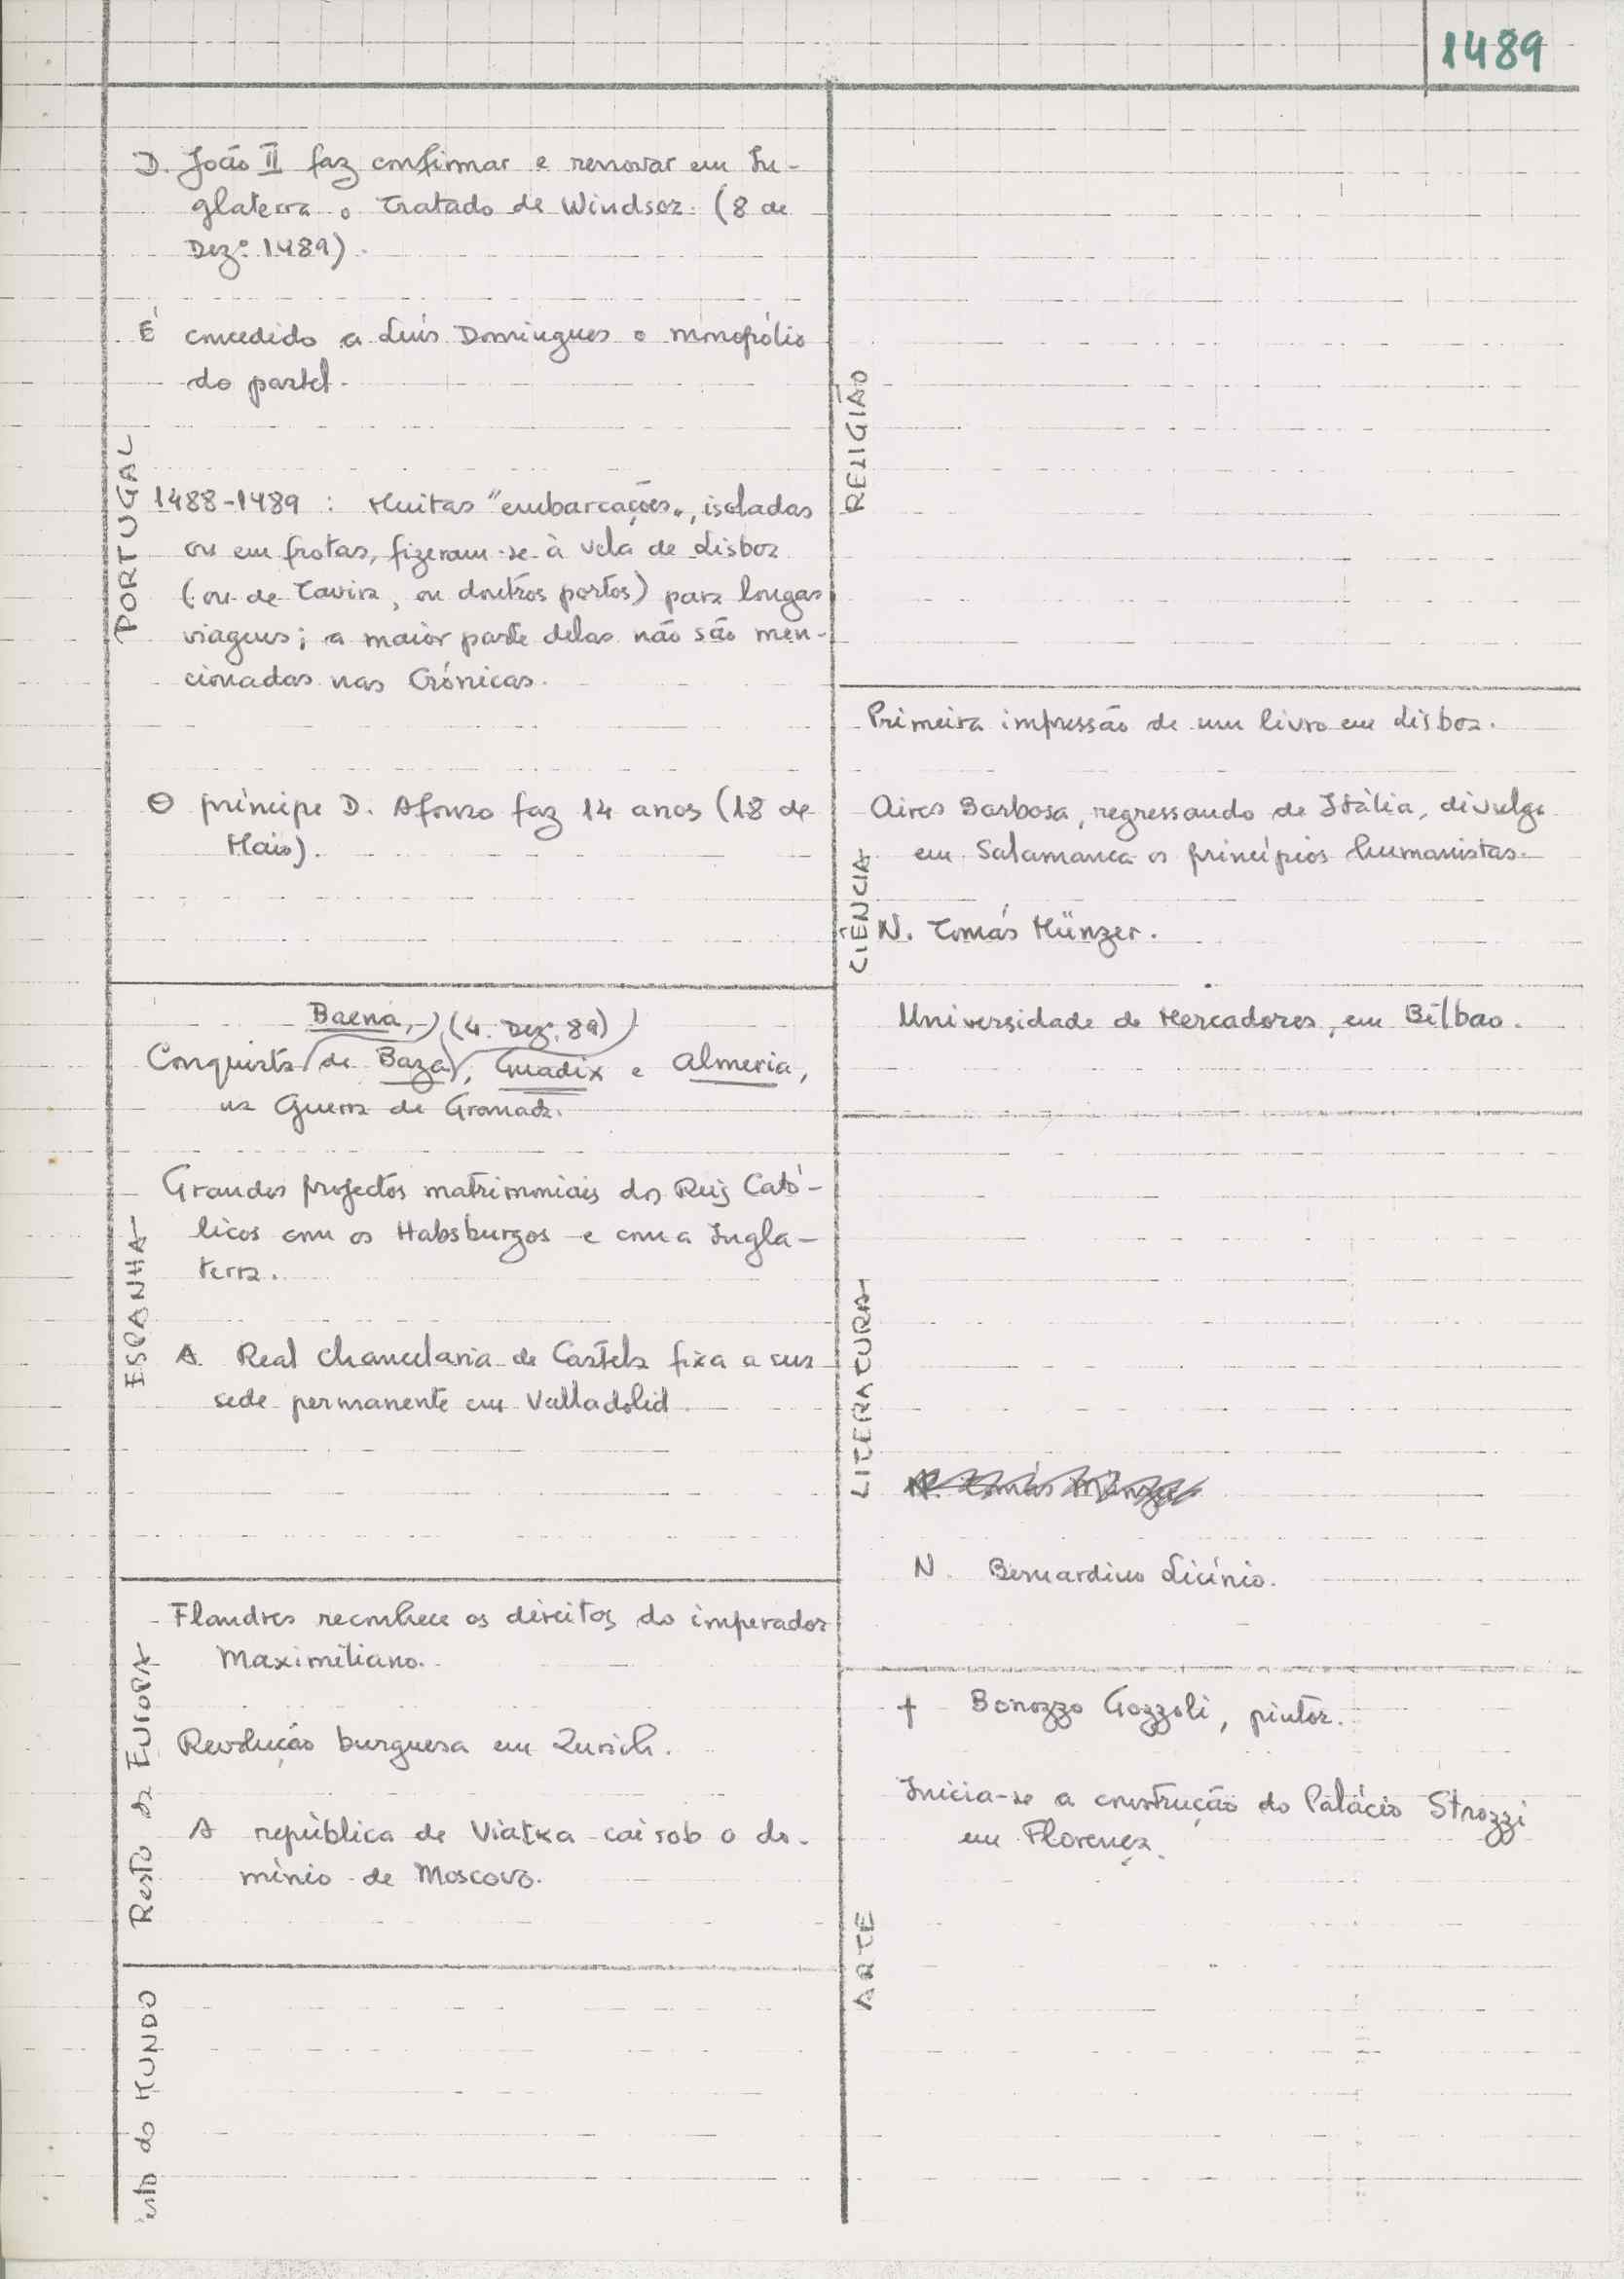 1489
PORTUGAL
D. João II faz confirmar e renovar em In-
glaterra o Tratado de Windsor. (8 de
Dezº 1489).
É concedido a Luís Domingues o monopólio
do pastel.
1488-1489 : Muitas "embarcações", isoladas
ou em frotas, fizeram-se à vela de Lisboa
(ou de Tavira, ou doutros portos) para longas
viagens; a maior parte delas não são men-
cionadas nas Crónicas.
O príncipe D. Afonso faz 14 anos (18 de
Maio).
ESPANHA
Baena, (4. Dez. 89)
Conquista de Baza, Guadix e Almeria,
na Guerra de Granada.
Grandes projectos matrimoniais dos Reis Cató-
licos com os Habsburgos e com a Ingla-
terra.
A Real Chancelaria de Castela fixa a sua
sede permanente em Valladolid.
Resto da EUROPA
Flandres reconhece os direitos do imperador
Maximiliano.
Revolução burguesa em Zurich.
A república de Viatka cai sob o do-
mínio de Moscovo.
esto do MUNDO
RELIGIÃO
CIÊNCIA
Primeira impressão de um livro em Lisboa.
Aires Barbosa, regressando de Itália, divulga
em Salamanca os princípios humanistas.
N. Tomás Münzer.
Universidade de Mercadores, em Bilbao.
LITERATURA
N. Tomás Münzer
N. Bernardino Licínio.
ARTE
† Bonozzo Gozzoli, pintor.
Inicia-se a construção do Palácio Strozzi
em Florença.